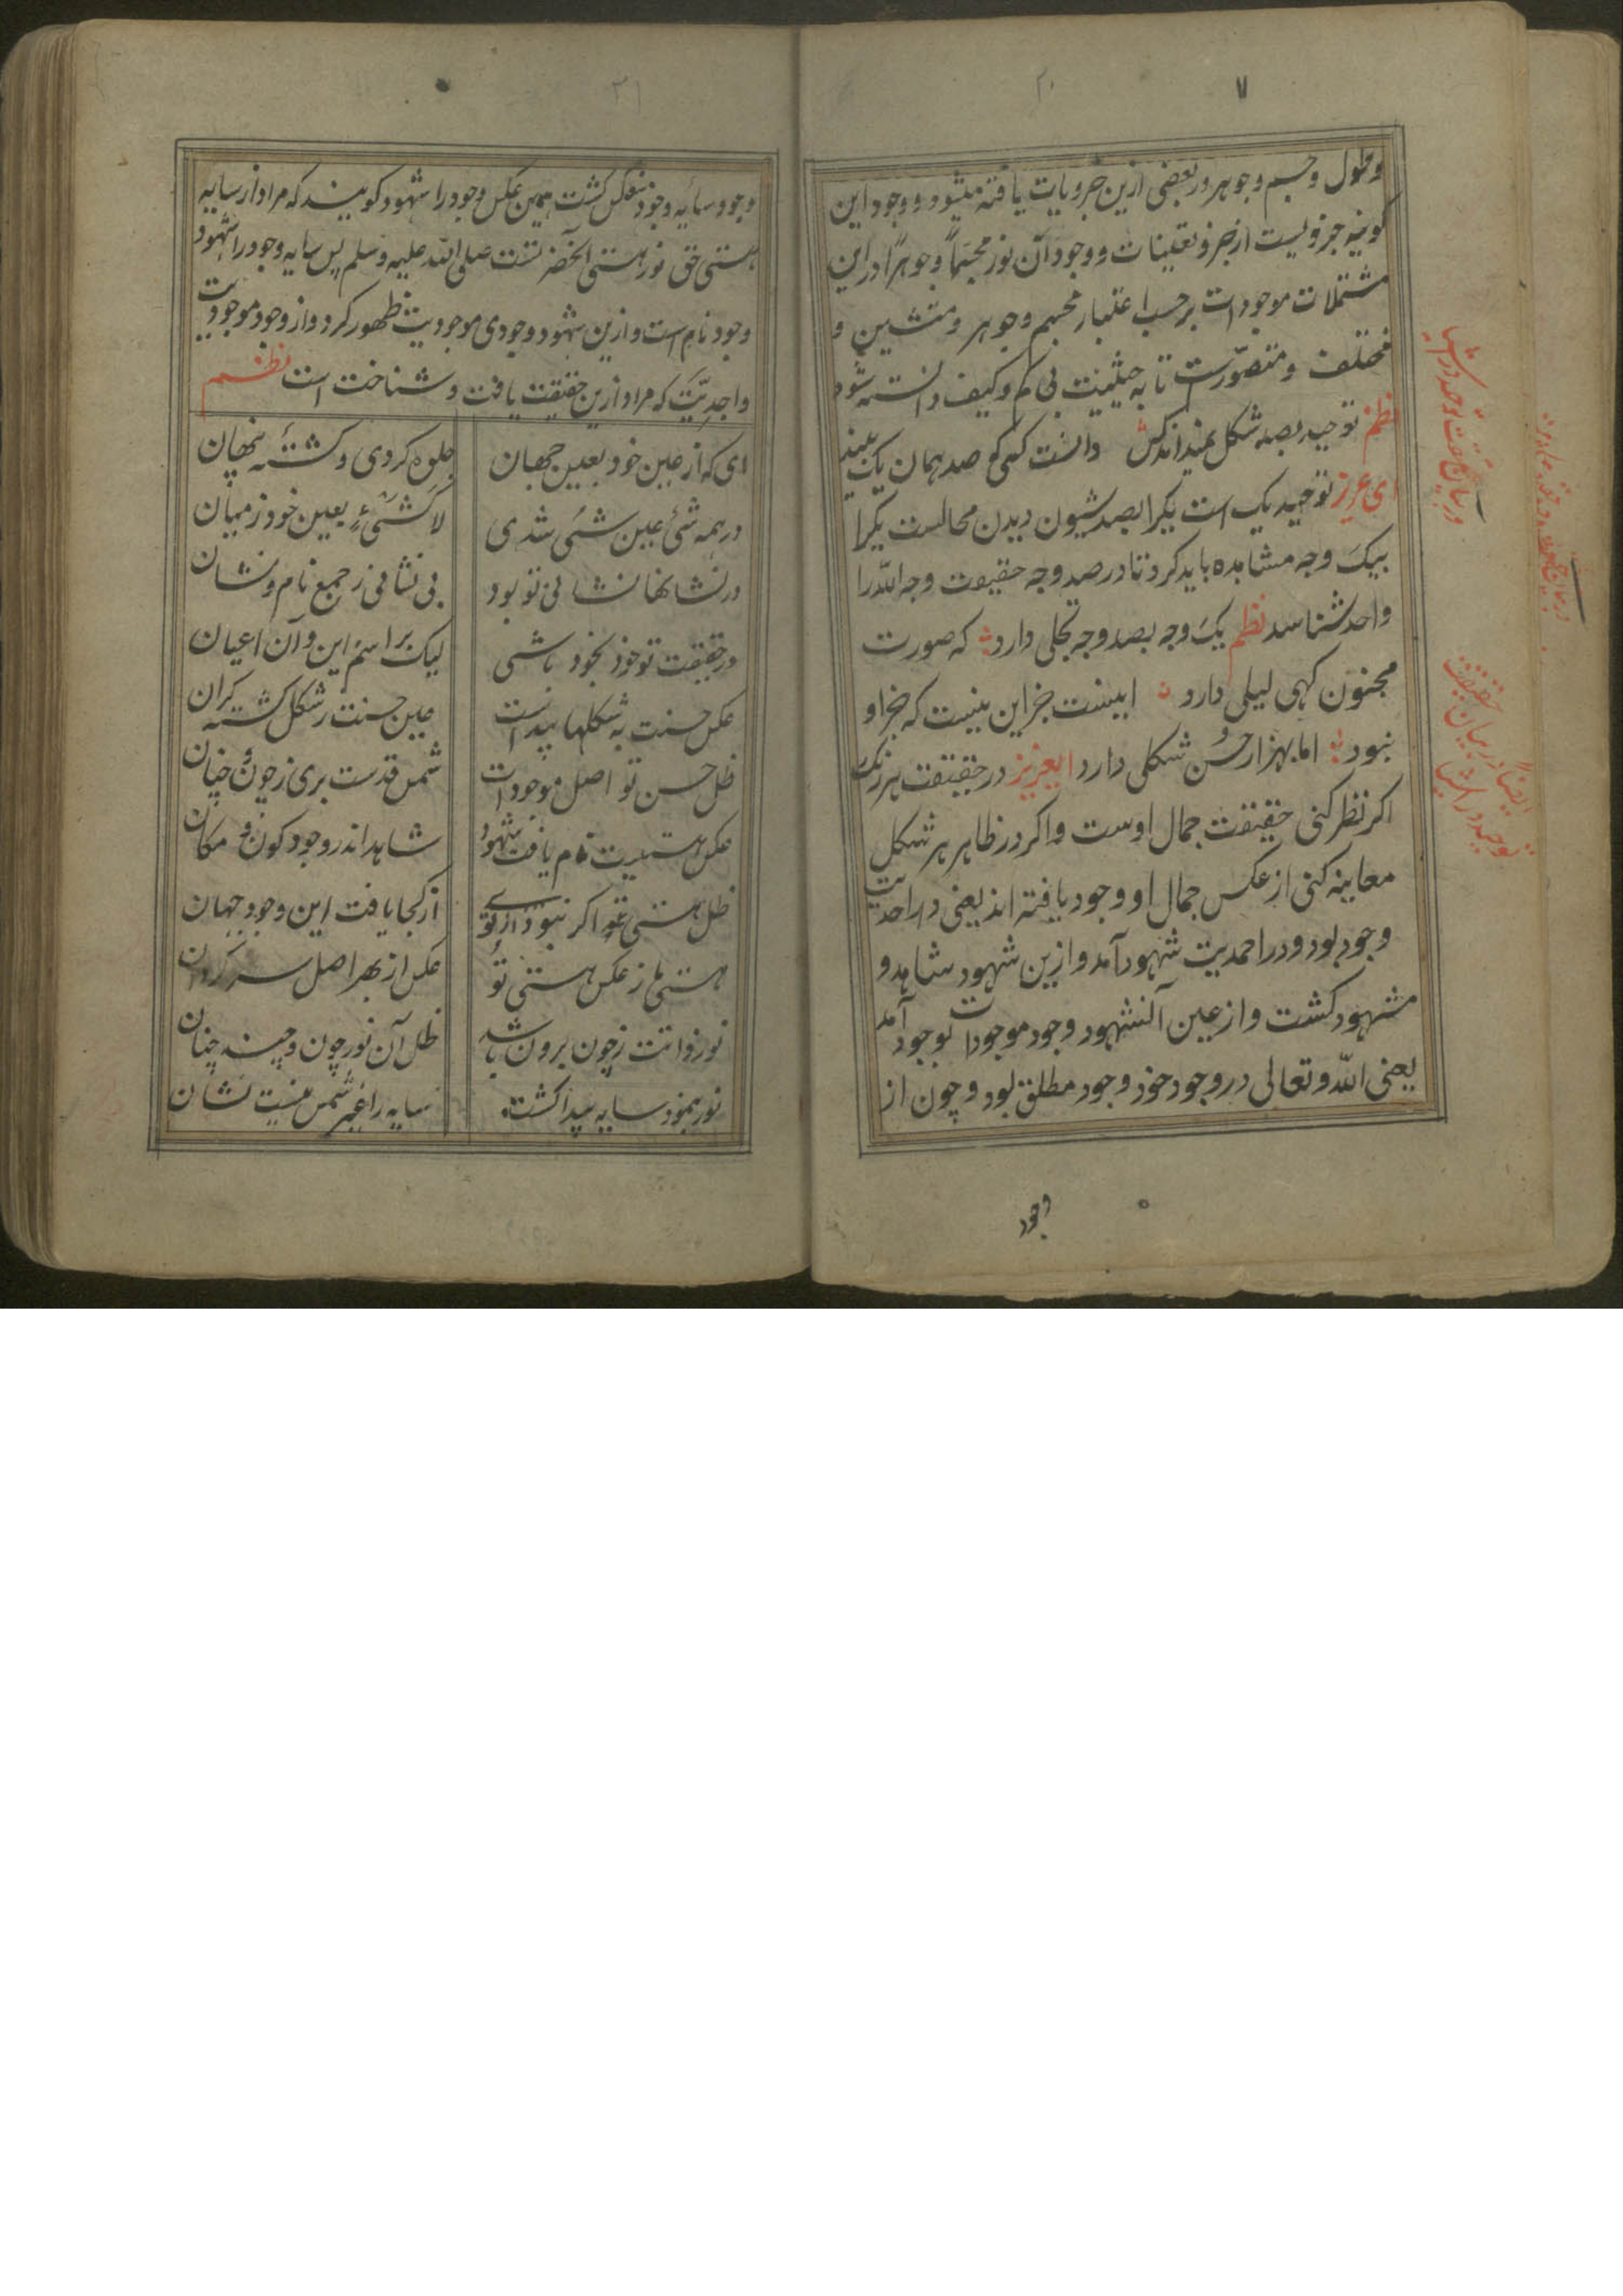 ۷
۲۰
وطول وجسم وجوهر در بعضی ازین جزویات یافته میشود و وجود این
کونیه جزویست از جزو تعینات و وجود آن نور مجسّماً وجوهراً در این
مشتملات موجودات برحسب اعتبار مجسم وجوهر و متشین و
مختلف و متصوّرست تا به حیثیت بی کم وکیف دانسته شود
نظم توحید بصد شکل نمیداند کس دانست کسی کو صد همان یک بیند
ای عزیز توحید یک است یکرا بصد شیون دیدن محالست یکرا
بیک وجه مشاهده باید کرد تا در صد وجه حقیقت وجه الله را
واحد شناسد نظم یک وجه بصد وجه تجلی دارد که صورت
مجنون کهی لیلی دارد اینست جز این نیست که جز او
نبود اما بهزار حسن شکلی دارد ایعزیز در حقیقت هر رنک
اکر نظر کنی حقیقت جمال اوست واکر در ظاهر هر شکل
معاینه کنی از عکس جمال او وجود یافته اند یعنی در احدیت
وجود بود و در احمدیت شهود آمد و ازین شهود شاهد و
مشهود کشت و از عین آنشهود وجود موجودات بوجود آمد
یعنی الله و تعالی در وجود خود وجود مطلق بود و چون از
وجود
در بیان حقیقت توحید در اشیا
ایضاً در بیان حقیقت
توحید در اشیا
۲۱
وجود سایه وجود منعکس کشت همین عکس وجود را شهود کویند که مراد از سایه
هستی حق نور هستی آنحضرتست صلی الله علیه وسلم پس سایه وجود را شهود
وجود نام است و ازین شهود وجودی موجودیت ظهور کرد و از وجود موجودیت
واجدیّت که مراد ازین حقیقت یافت و شناخت است نظم
ای که از عین خود بعین جهان جلوه کردی و کشتهٔ پنهان
در همه شئ عین شئی شدی لا کشئءٍ بعین خود ز میان
در نشانها نشانی تو بود بی نشانی ز جمیع نام و نشان
در حقیقت تو خود بخود باشی لیک بر اسم این و آن اعیان
عکس حسنت به شکلها پیداست عین حسنت ز شکل کشته کران
ظل حسن تو اصل موجودات شمس قدست بری ز چون و چنان
عکس هستیت نام یافت شهود شاهد اندر وجود کون و مکان
ظل هستی تو اکر نبودی از کجا یافت این وجود جهان
هستی ما ز عکس هستی تو عکس از بهر اصل سر کردان
نور ذاتت ز چون برون باشد ظل آن نور چون و چند چنان
نور بنمود سایه پیدا کشت سایه را غیر شمس نیست نشان